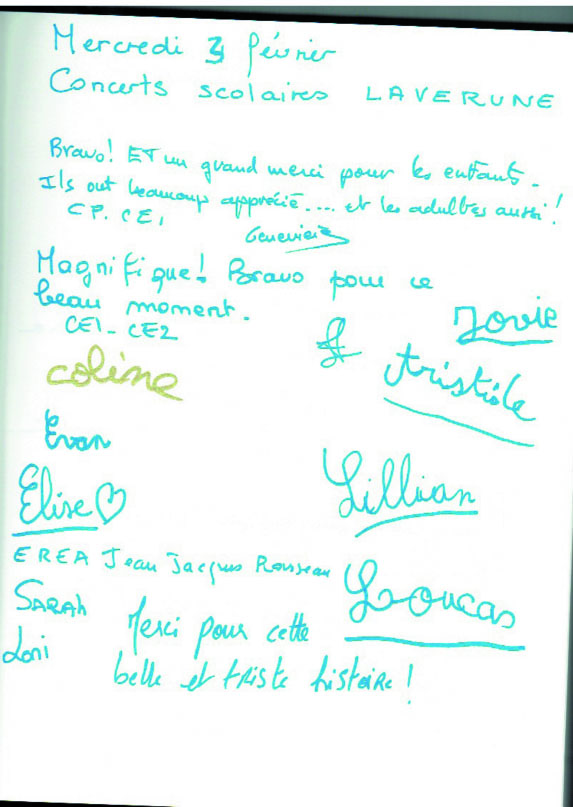 Mercredi 3 février
Concerts scolaires LAVERUNE
Bravo! ET un grand merci pour les enfants.
Ils ont beaucoup apprécié.... et les adultes aussi!
CP. CE1
Geneviève
Magnifique! Bravo pour ce
beau moment.
CE1 - CE2
Jovie
Aristide
coline
Evan
Lillian
Elise ♡
EREA Jean Jacques Rousseau
Loucas
SARAh
Loni
Merci pour cette
belle et triste histoire!